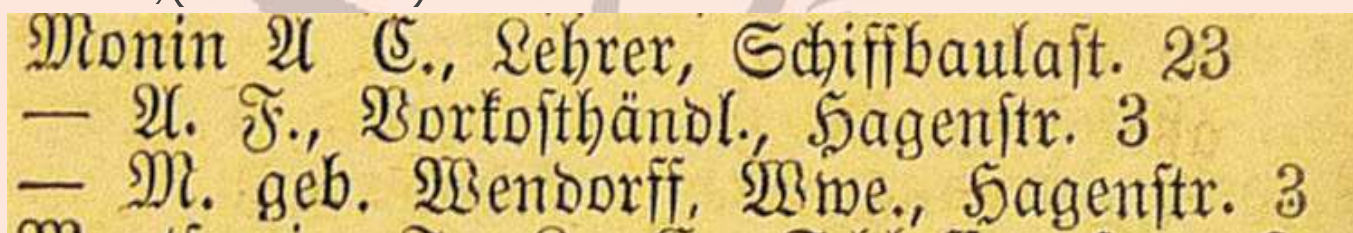 Monin A C., Lehrer, Schiffbaulast. 23
— A. F., Vorkosthändl., Hagenstr. 3
— M. geb. Wendorff, Wwe., Hagenstr. 3